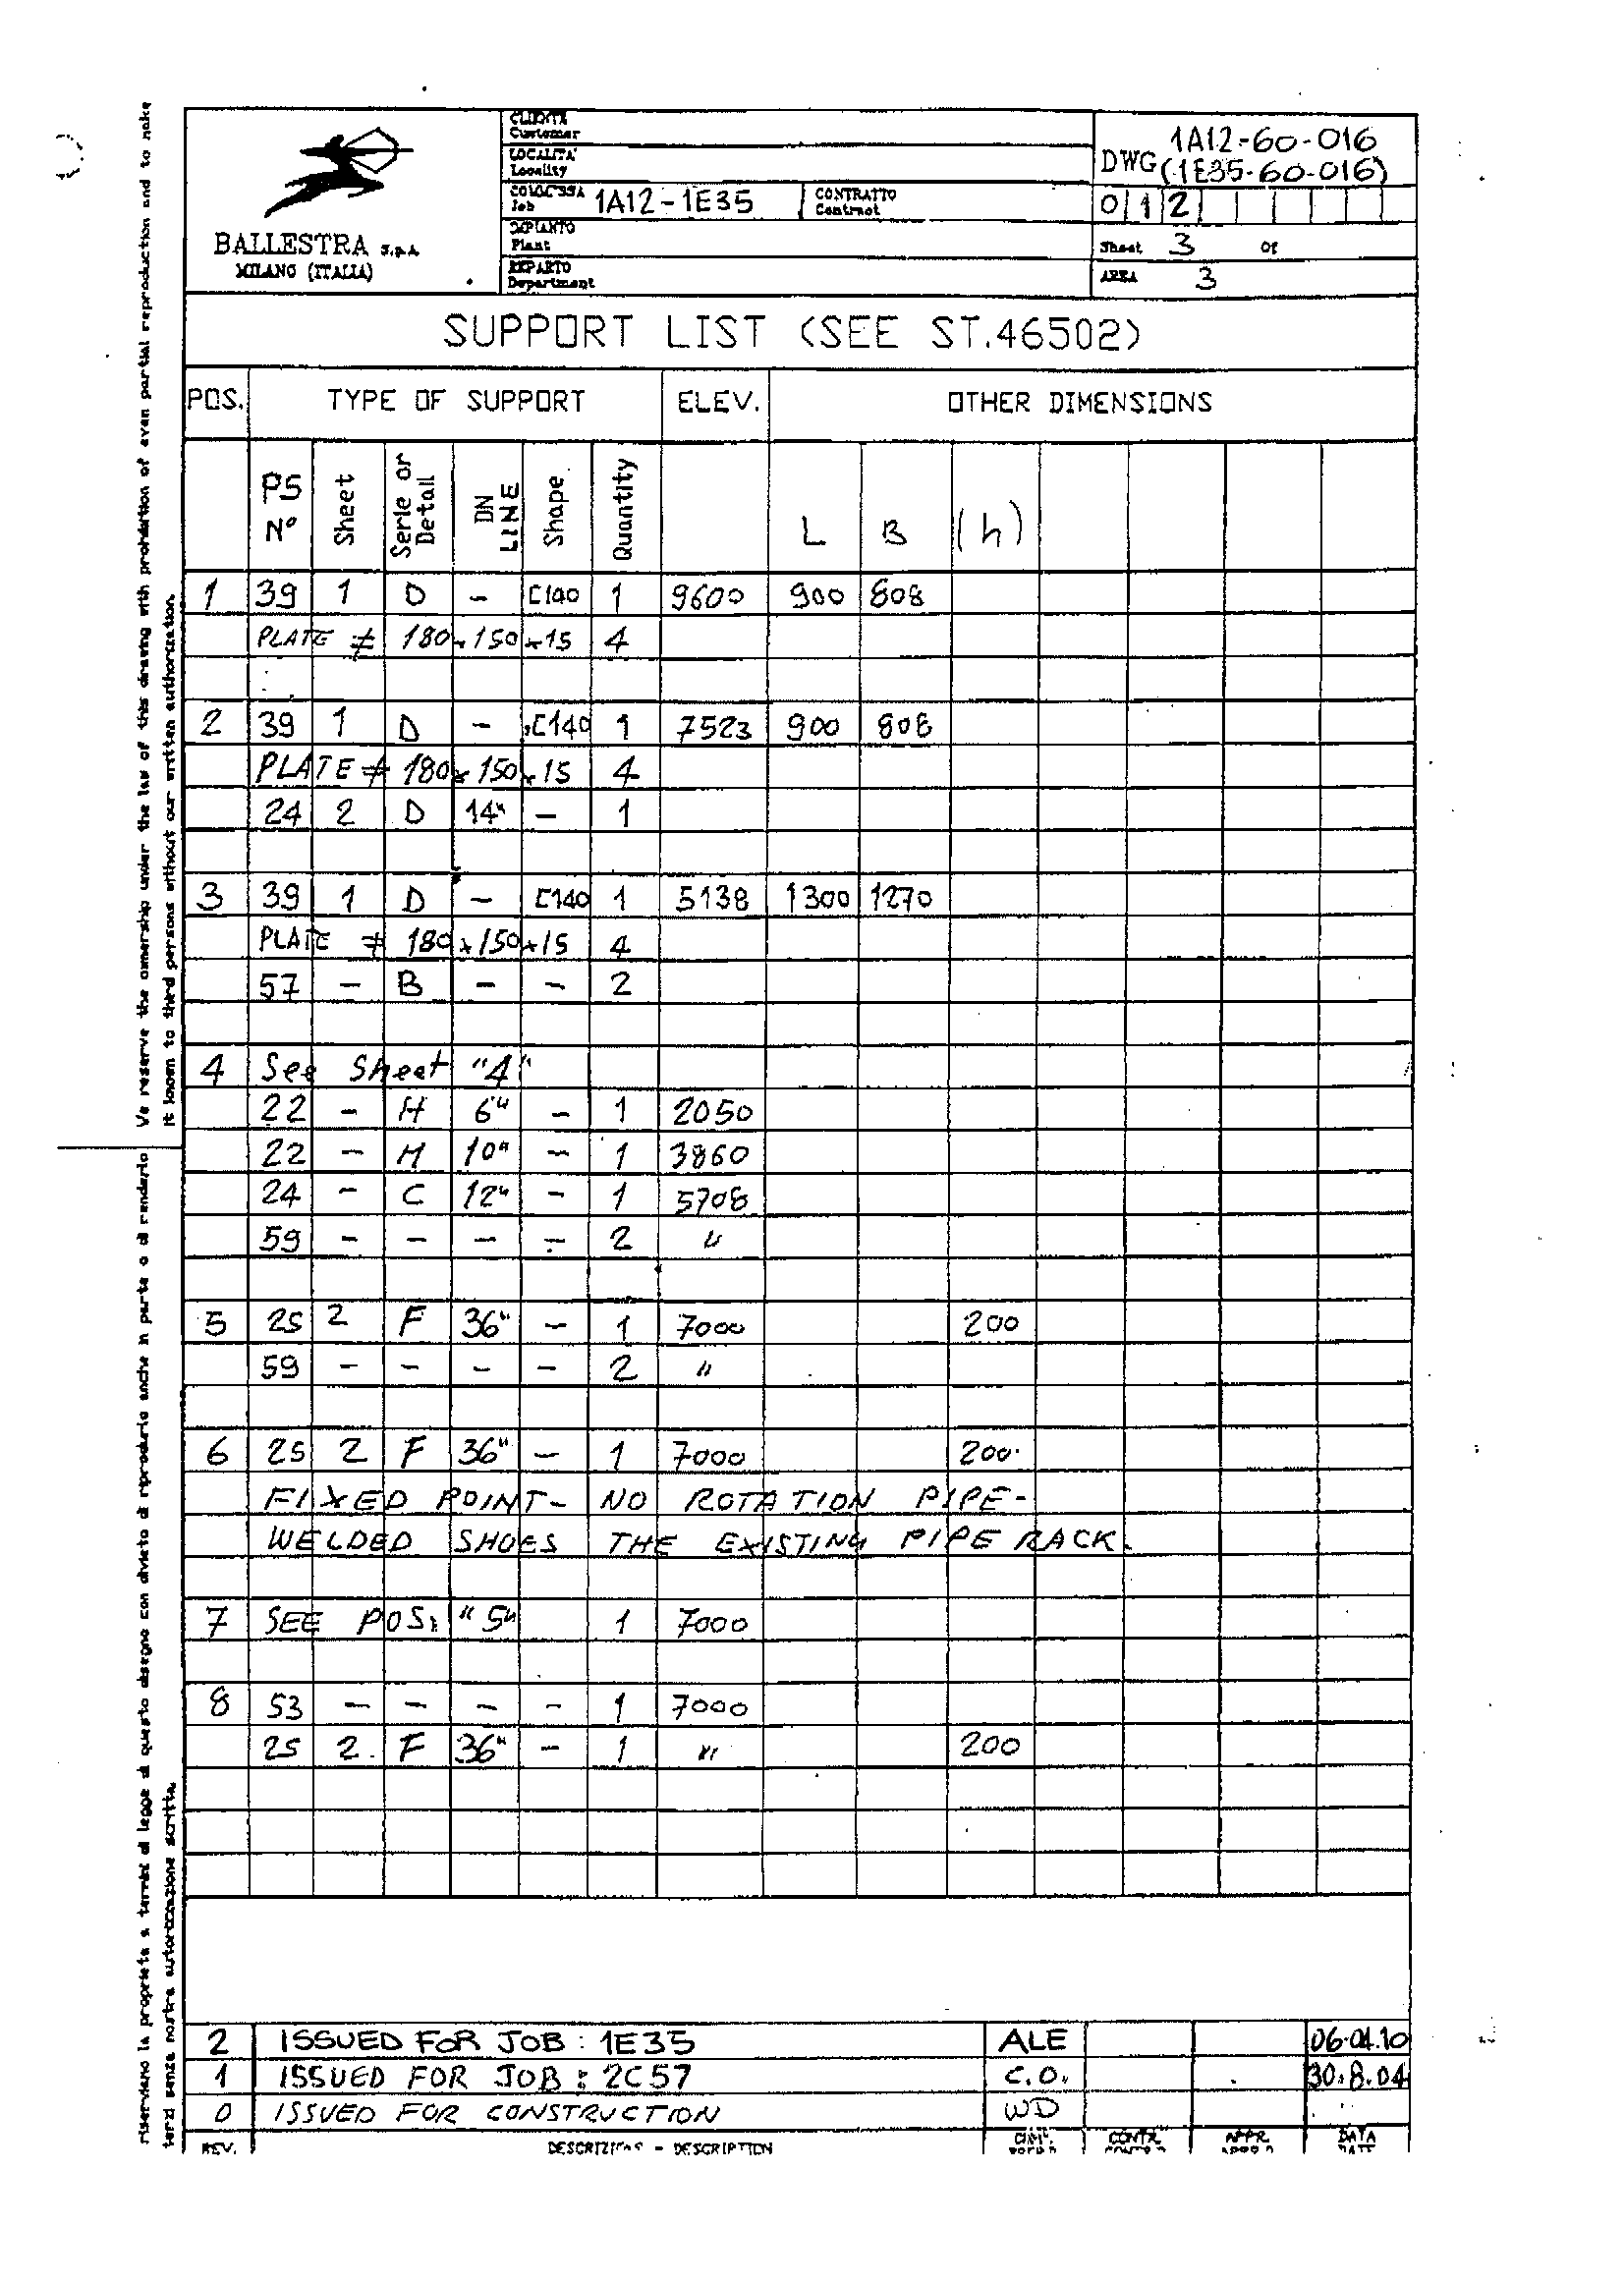 CLIENTE
Customer
LOCALITA'
Locality
COMMESSA
Job
1A12-1E35
CONTRATTO
Contract
IMPIANTO
Plant
REPARTO
Department
BALLESTRA S.p.A.
MILANO (ITALIA)
1A12-60-016
DWG (1E35-60-016)
0 1 2
Sheet 3 Of
AREA 3
SUPPORT LIST (SEE ST.46502)
POS. TYPE OF SUPPORT ELEV. OTHER DIMENSIONS
PS N° Sheet Serie or Detail DN LINE Shape Quantity L B (h)
1 39 1 D - [140 1 9600 900 808
PLATE ≠ 180x150x15 4
2 39 1 D - [140 1 7523 900 808
PLATE ≠ 180x150x15 4
24 2 D 14" - 1
3 39 1 D - [140 1 5138 1300 1270
PLATE ≠ 180x150x15 4
57 - B - - 2
4 See Sheet "4"
22 - H 6" - 1 2050
22 - H 10" - 1 3860
24 - C 12" - 1 5708
59 - - - - 2 "
5 25 2 F 36" - 1 7000 200
59 - - - - 2 "
6 25 2 F 36" - 1 7000 200
FIXED POINT- NO ROTATION PIPE-
WELDED SHOES THE EXISTING PIPE RACK.
7 SEE POS: "5" 1 7000
8 53 - - - - 1 7000
25 2 F 36" - 1 " 200
2 ISSUED FOR JOB: 1E35 ALE 06.04.10
1 ISSUED FOR JOB: 2C57 C.O. 30.8.04
0 ISSUED FOR CONSTRUCTION WD
REV. - DESCRIPTION CONTR. APPR. DATA
We reserve the ownership under the law of this drawing with prohibition of even partial reproduction and to make
it known to third persons without our written authorization.
riserviamo la proprietà a termini di legge di questo disegno con divieto di riprodurlo anche in parte o di renderlo
terzi senza nostra autorizzazione scritta.